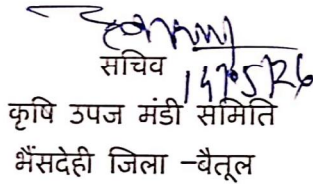 सचिव
कृषि उपज मंडी समिति
भैंसदेही जिला –बैतूल